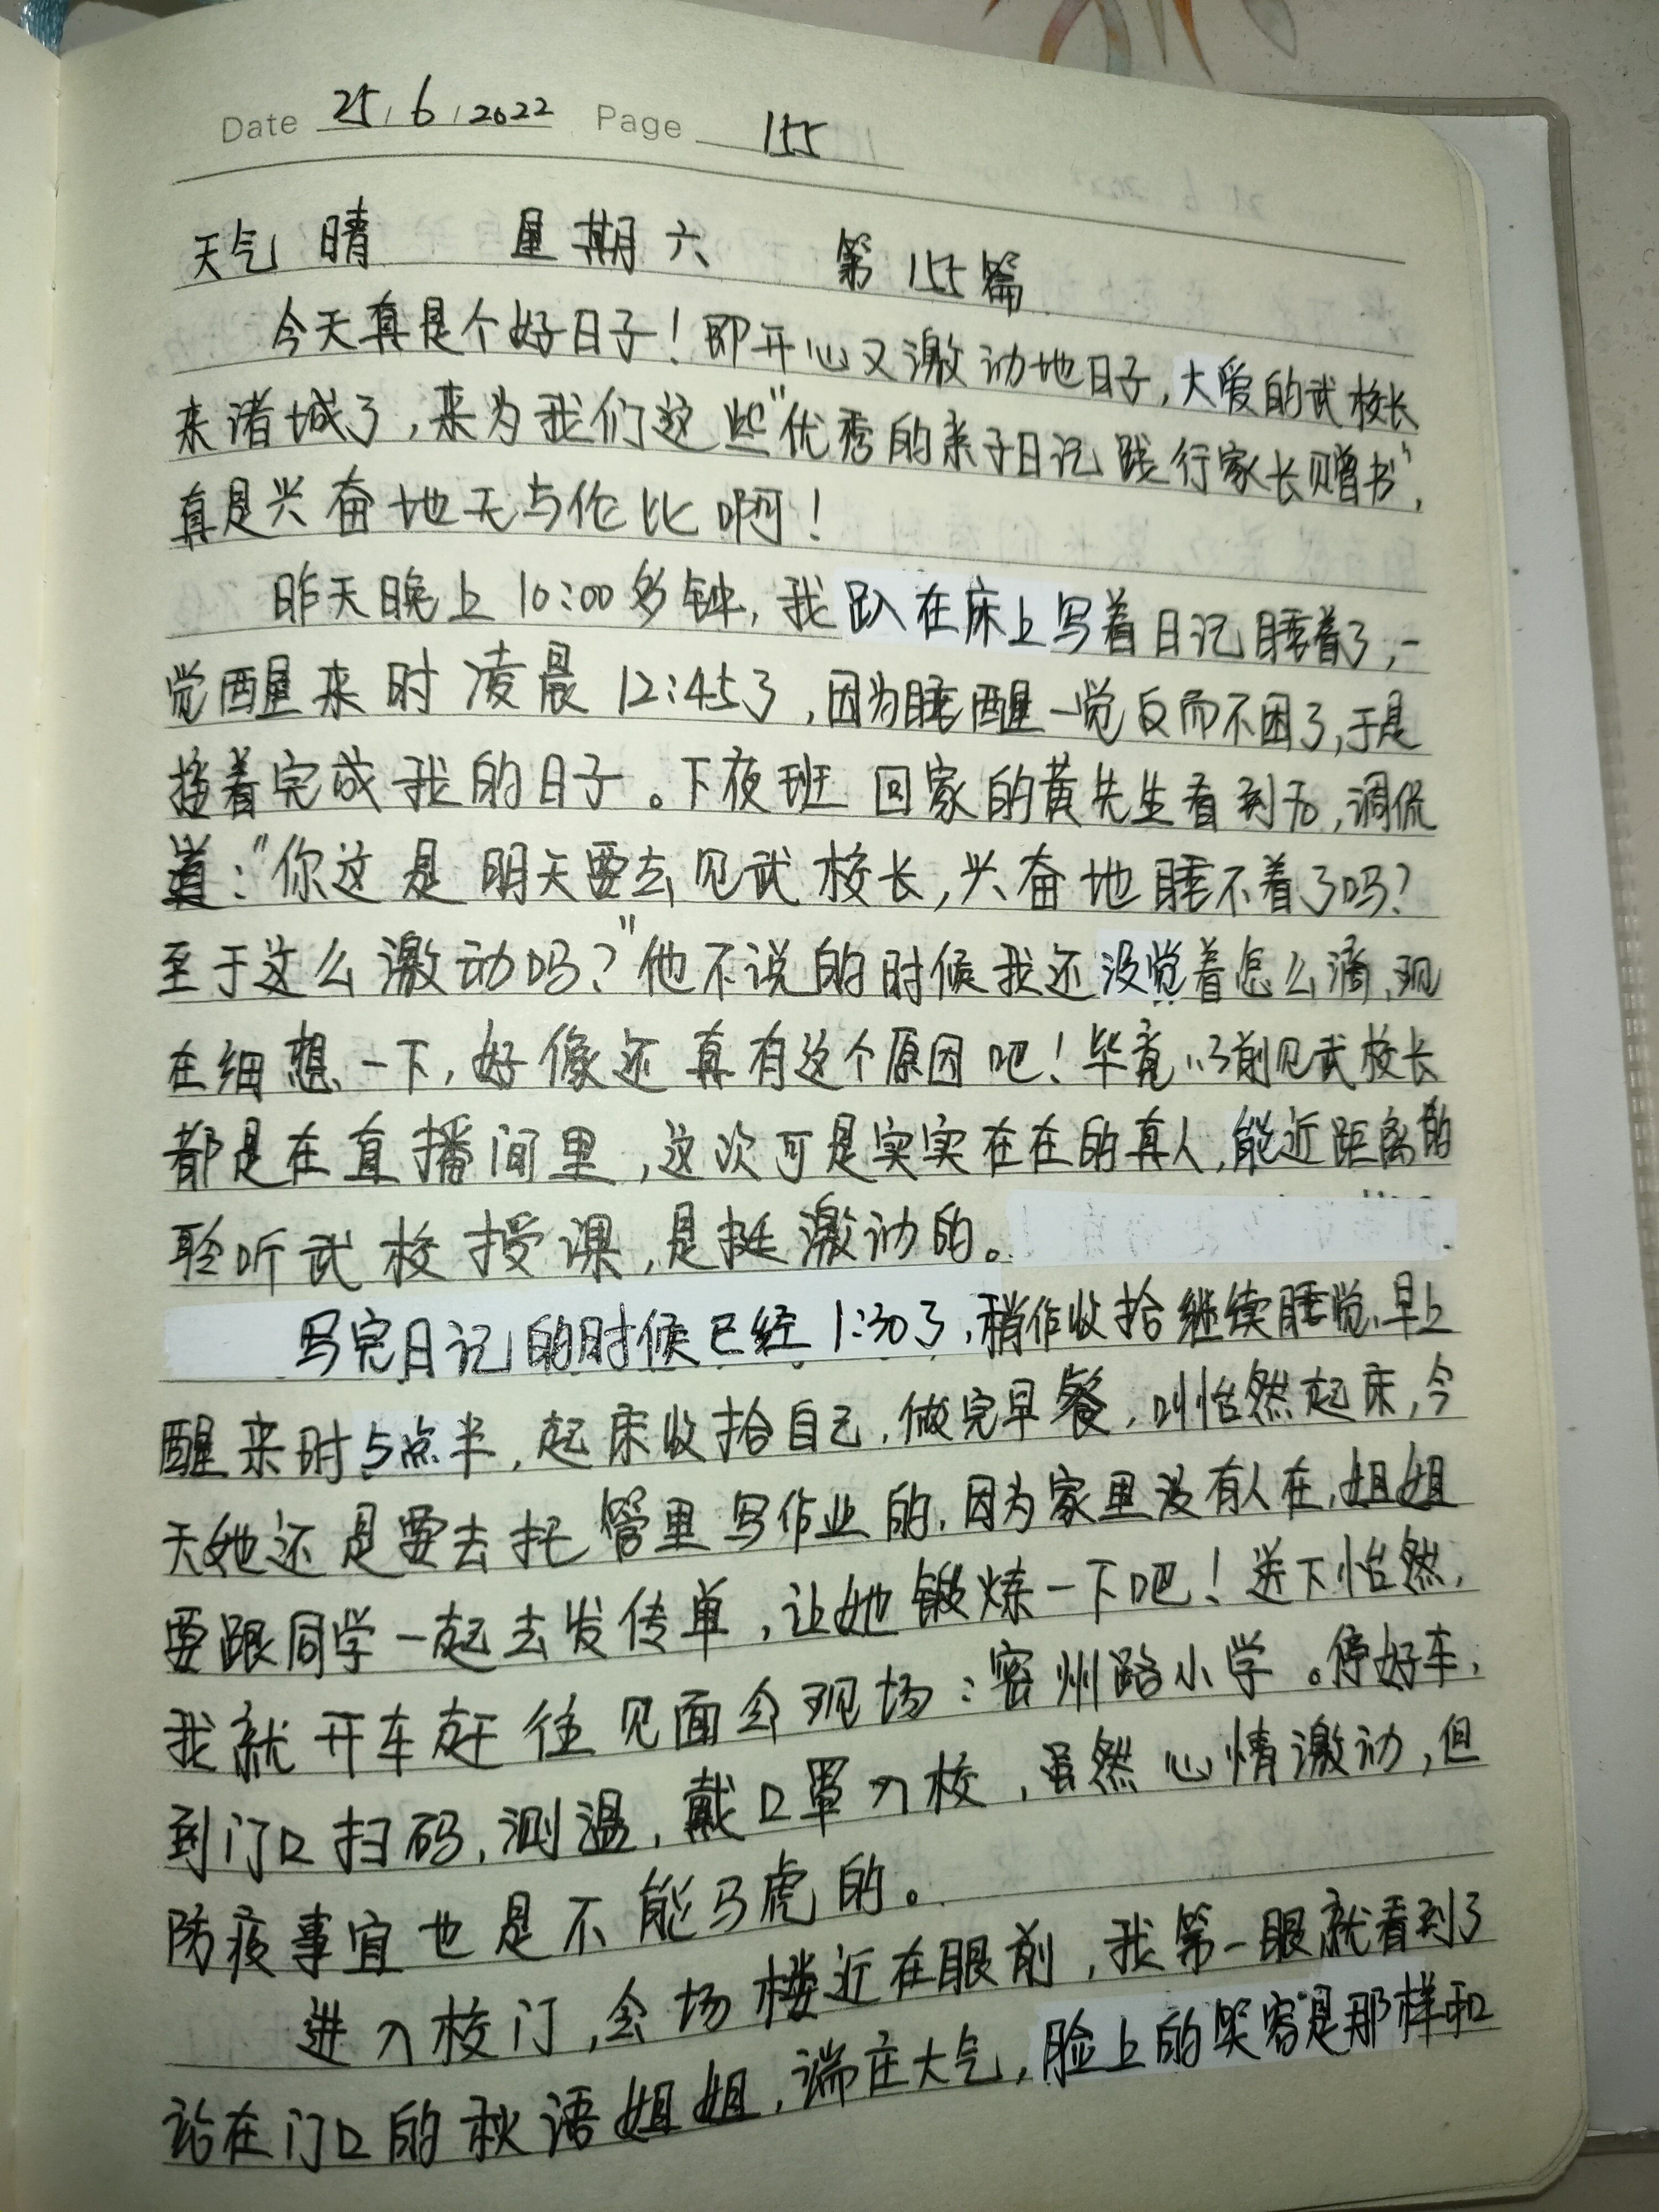 Date 25/6/2022 Page 155
天气 晴 星期六 第155篇
今天真是个好日子！即开心又激动地日子，大爱的武校长
来诸城了，来为我们这些“优秀的亲子日记践行家长赠书”，
真是兴奋地无与伦比啊！
昨天晚上10:00多钟，我趴在床上写着日记睡着了，一
觉醒来时凌晨12:45了，因为睡醒一觉反而不困了，于是
接着完成我的日子。下夜班回家的黄先生看到后，调侃
道：“你这是明天要去见武校长，兴奋地睡不着了吗？
至于这么激动吗？”他不说的时候我还没觉着怎么滴，现
在细想一下，好像还真有这个原因吧！毕竟以前见武校长
都是在直播间里，这次可是实实在在的真人，能近距离的
聆听武校授课，是挺激动的。
写完日记的时候已经1:30了，稍作收拾继续睡觉，早上
醒来时5点半，起床收拾自己，做完早餐，叫怡然起床，今
天她还是要去托管里写作业的，因为家里没有人在，姐姐
要跟同学一起去发传单，让她锻炼一下吧！送下怡然，
我就开车赶往见面会现场：密州路小学。停好车，
到门口扫码，测温，戴口罩入校，虽然心情激动，但
防疫事宜也是不能马虎的。
进入校门，会场楼近在眼前，我第一眼就看到了
站在门口的秋语姐姐，端庄大气，脸上的笑容是那样和